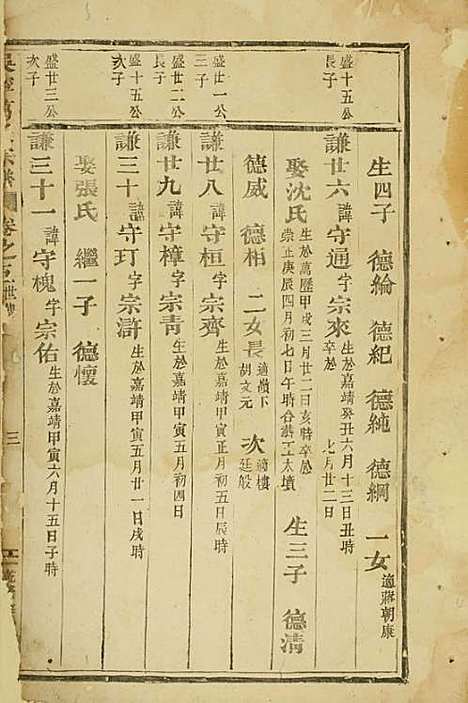 生四子 德綸 德紀 德純 德綱 一女 適蔣朝康
盛十五公長子
謙廿六 諱守通 字宗來 生於嘉靖癸丑六月十三日丑時卒於 七月廿二日
娶沈氏 生於萬歷甲戌三月廿二日亥時卒於崇正庚辰四月初七日午時合葬 木墳 生三子 德清
德威 德相 二女長 適嶺下胡文元 次 適 樓廷般
盛廿一公三子
謙廿八 諱守桓 字宗齊 生於嘉靖甲寅正月初五日辰時
盛廿二公長子
謙廿九 諱守樟 字宗青 生於嘉靖甲寅五月初四日
盛十五公次子
謙三十 諱守玎 字宗滸 生於嘉靖甲寅五月廿一日戌時
娶張氏 繼一子 德懷
盛廿三公次子
謙三十一 諱守槐 字宗佑 生於嘉靖甲寅六月十五日子時
卷之
三